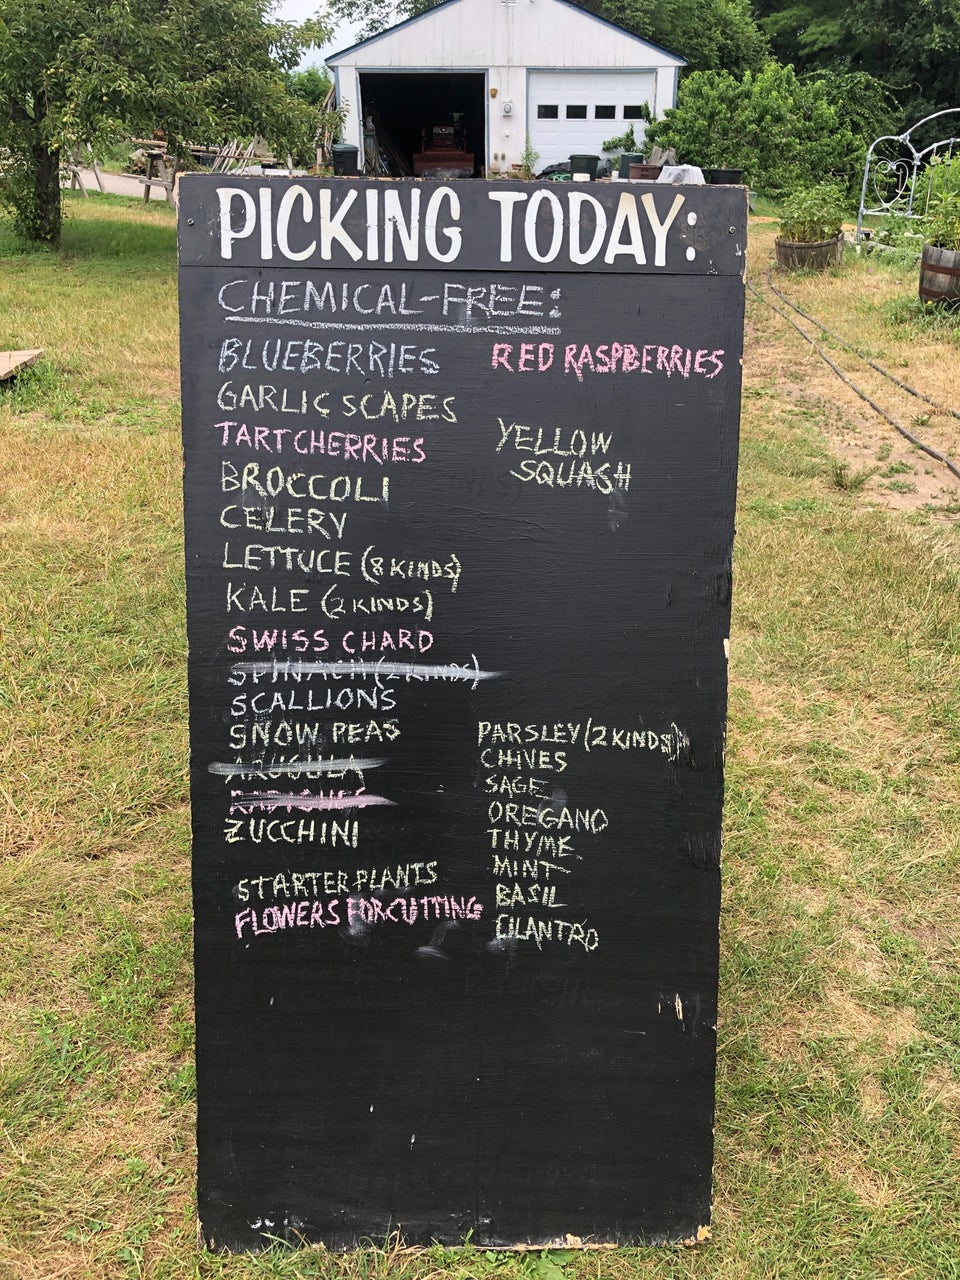 PICKING TODAY:
CHEMICAL-FREE:
BLUEBERRIES
GARLIC SCAPES
TART CHERRIES
BROCCOLI
CELERY
LETTUCE (8 KINDS)
KALE (2 KINDS)
SWISS CHARD
SPINACH (2 KINDS)
SCALLIONS
SNOW PEAS
ARUGULA
RADISHES
ZUCCHINI
STARTER PLANTS
FLOWERS FOR CUTTING
RED RASPBERRIES
YELLOW
SQUASH
PARSLEY (2 KINDS)
CHIVES
SAGE
OREGANO
THYME
MINT
BASIL
CILANTRO